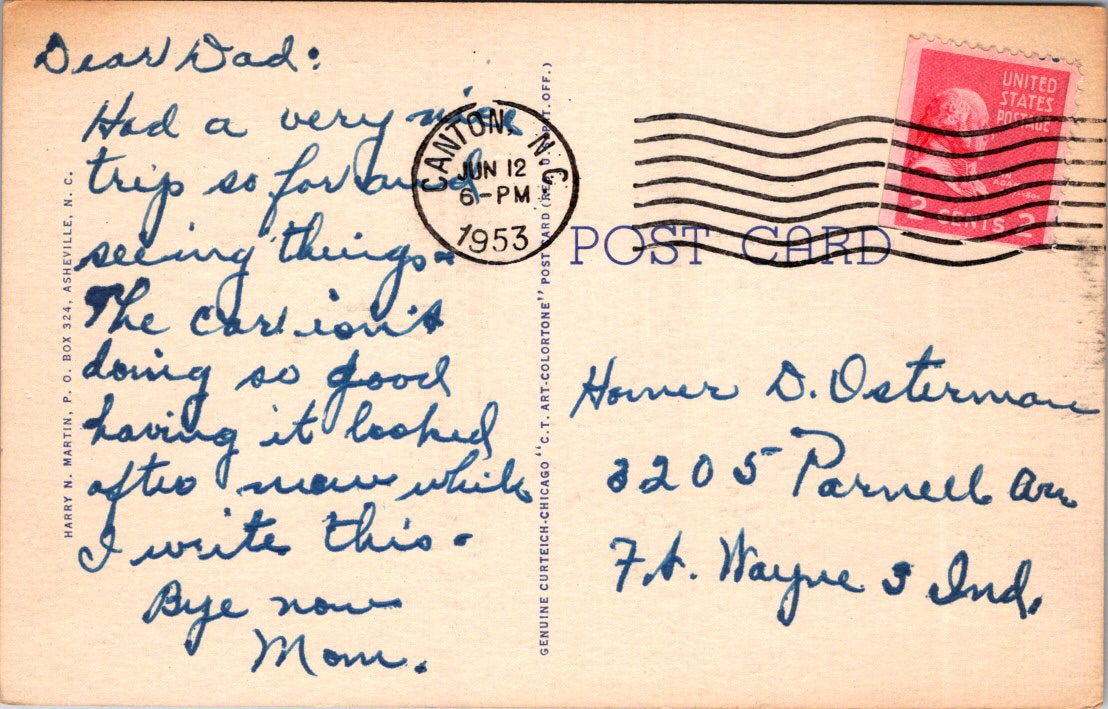 Dear Dad:
Had a very nice
trip so far and
seeing things -
The car isn't
doing so good
having it looked
after now while
I write this -
Bye now
Mom.
HARRY N. MARTIN, P. O. BOX 324, ASHEVILLE, N. C.
GENUINE CURTEICH-CHICAGO "C.T. ART-COLORTONE" POST CARD (REG. U.S. PAT. OFF.)
CANTON, N.C.
JUN 12
6-PM
1953
UNITED
STATES
POSTAGE
2 CENTS 2
POST CARD
Homer D. Osterman
3205 Parnell Ave
Ft. Wayne 3 Ind.